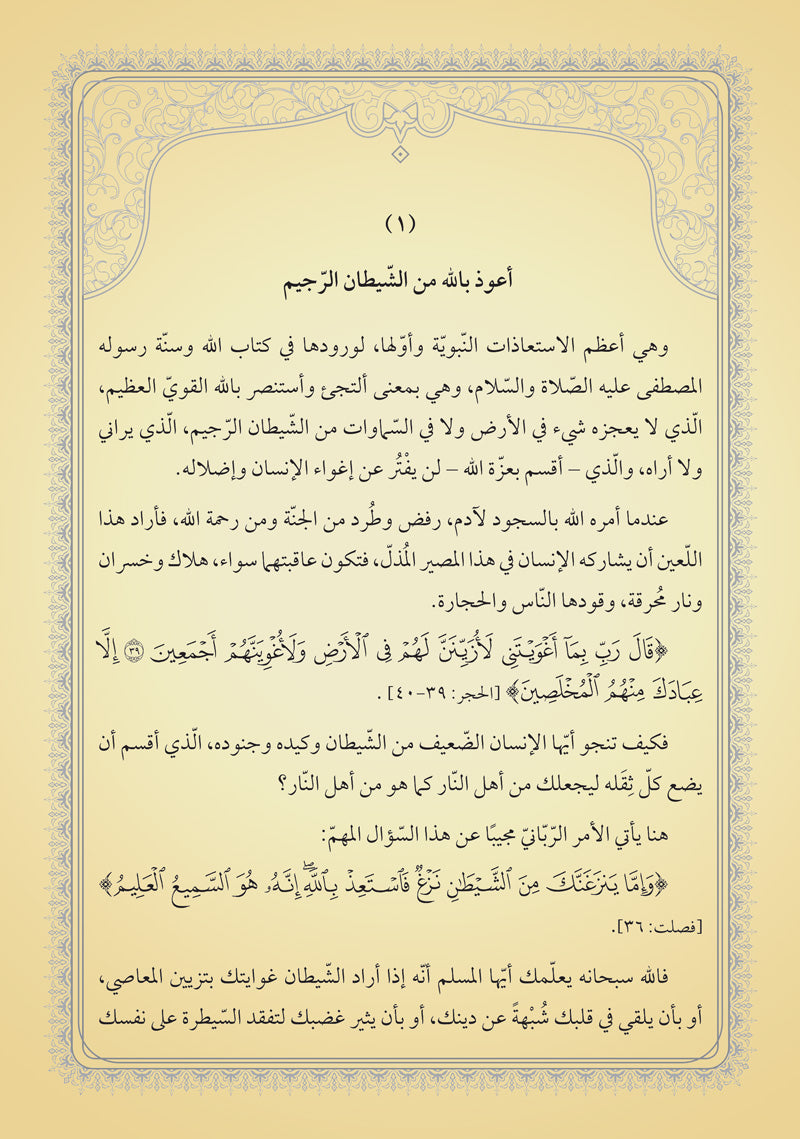 (١)
أعوذ بالله من الشّيطان الرّجيم
وهي أعظم الاستعاذات النّبويّة وأوّلها، لورودها في كتاب الله وسنّة رسوله
المصطفى عليه الصّلاة والسّلام، وهي بمعنى ألتجئ وأستنصر بالله القويّ العظيم،
الّذي لا يعجزه شيء في الأرض ولا في السّماوات من الشّيطان الرّجيم، الّذي يراني
ولا أراه، والّذي – أقسم بعزّة الله – لن يفْتُر عن إغواء الإنسان وإضلاله.
عندما أمره الله بالسجود لآدم، رفض وطُرد من الجنّة ومن رحمة الله، فأراد هذا
اللّعين أن يشاركه الإنسان في هذا المصير المُذلّ، فتكون عاقبتهما سواء، هلاك وخسران
ونار مُحرقة، وقودها النّاس والحجارة.
﴿قَالَ رَبِّ بِمَآ أَغْوَيْتَنِى لَأُزَيِّنَنَّ لَهُمْ فِى ٱلْأَرْضِ وَلَأُغْوِيَنَّهُمْ أَجْمَعِينَ ٣٩ إِلَّا
عِبَادَكَ مِنْهُمُ ٱلْمُخْلَصِينَ﴾ [الحجر: ٣٩-٤٠] .
فكيف تنجو أيّها الإنسان الضّعيف من الشّيطان وكيده وجنوده، الّذي أقسم أن
يضع كلّ ثِقَله ليجعلك من أهل النّار كما هو من أهل النّار؟
هنا يأتي الأمر الرّبّانيّ مجيبًا عن هذا السّؤال المهمّ:
﴿وَإِمَّا يَنزَغَنَّكَ مِنَ ٱلشَّيْطَٰنِ نَزْغٌ فَٱسْتَعِذْ بِٱللَّهِۖ إِنَّهُۥ هُوَ ٱلسَّمِيعُ ٱلْعَلِيمُ﴾
[فصلت: ٣٦].
فالله سبحانه يعلّمك أيّها المسلم أنّه إذا أراد الشّيطان غوايتك بتزيين المعاصي،
أو بأن يلقي في قلبك شُبْهةً عن دينك، أو بأن يثير غضبك لتفقد السّيطرة على نفسك